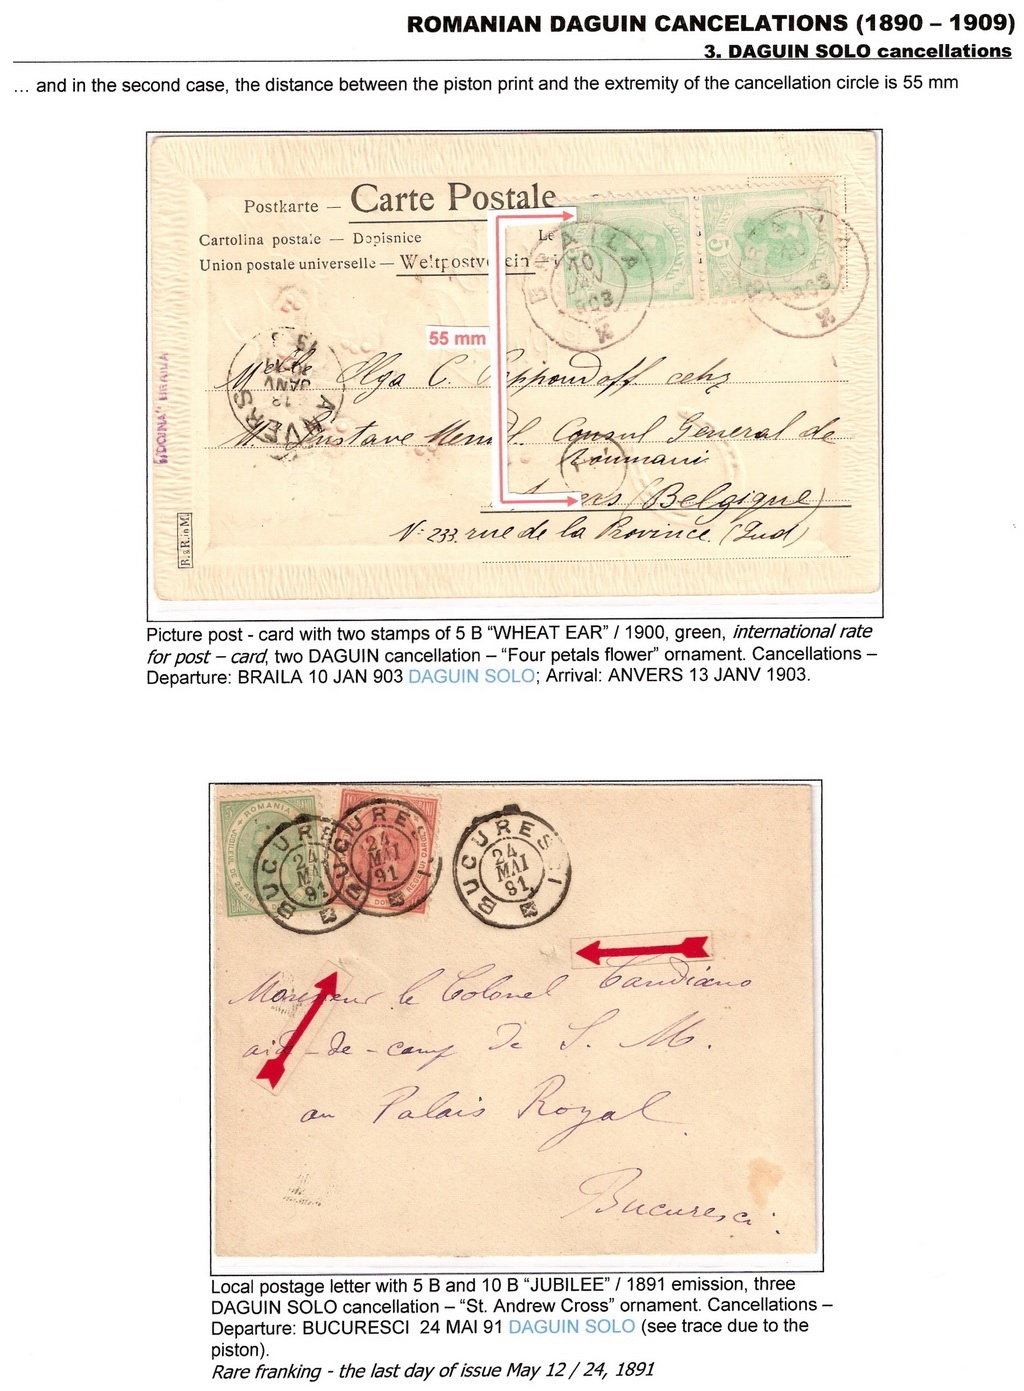 ROMANIAN DAGUIN CANCELATIONS (1890 – 1909)
3. DAGUIN SOLO cancellations
... and in the second case, the distance between the piston print and the extremity of the cancellation circle is 55 mm
Postkarte — Carte Postale
Cartolina postale — Dopisnice Le
Union postale universelle — Weltpostverein —
BRAILA
10
JAN
903
BRAILA
10
903
5
55 mm
"DOINA" BRAILA
ANVERS
13
JANV
19
Olga C.
M. Gustave Consul General de
Roumani
(Belgique)
N: 233. rue de la Province. (Sud)
R. & R. in M.
Picture post - card with two stamps of 5 B “WHEAT EAR” / 1900, green, international rate
for post – card, two DAGUIN cancellation – “Four petals flower” ornament. Cancellations –
Departure: BRAILA 10 JAN 903 DAGUIN SOLO; Arrival: ANVERS 13 JANV 1903.
ROMANIA
BUCURESCI
24
MAI
91
BUCURESCI
24
MAI
91
BUCURESCI
24
MAI
91
Monsieur le Colonel Candiano
aid-de-camp de S. M.
au Palais Royal
Bucuresci.
Local postage letter with 5 B and 10 B “JUBILEE” / 1891 emission, three
DAGUIN SOLO cancellation – “St. Andrew Cross” ornament. Cancellations –
Departure: BUCURESCI 24 MAI 91 DAGUIN SOLO (see trace due to the
piston).
Rare franking - the last day of issue May 12 / 24, 1891